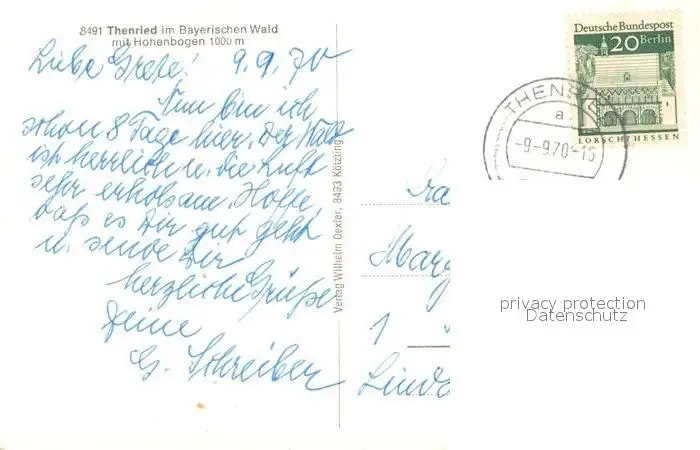 8491 Thenried im Bayerischen Wald
mit Hohenbogen 1000 m
Liebe Grete! 9.9.70
Nun bin ich
schon 8 Tage hier. Der Wald
ist herrlich u. die Luft
sehr erholsam. Hoffe,
daß es Dir gut geht
u. sende Dir
herzliche Grüße
Deine
G. Schreiber
Verlag Wilhelm Oexler, 8493 Kötzting
Deutsche Bundespost
20 Berlin
LORSCH/HESSEN
THENR
a
-9.-9.70-15
Fra
Marg
1
Linda
privacy protection
Datenschutz